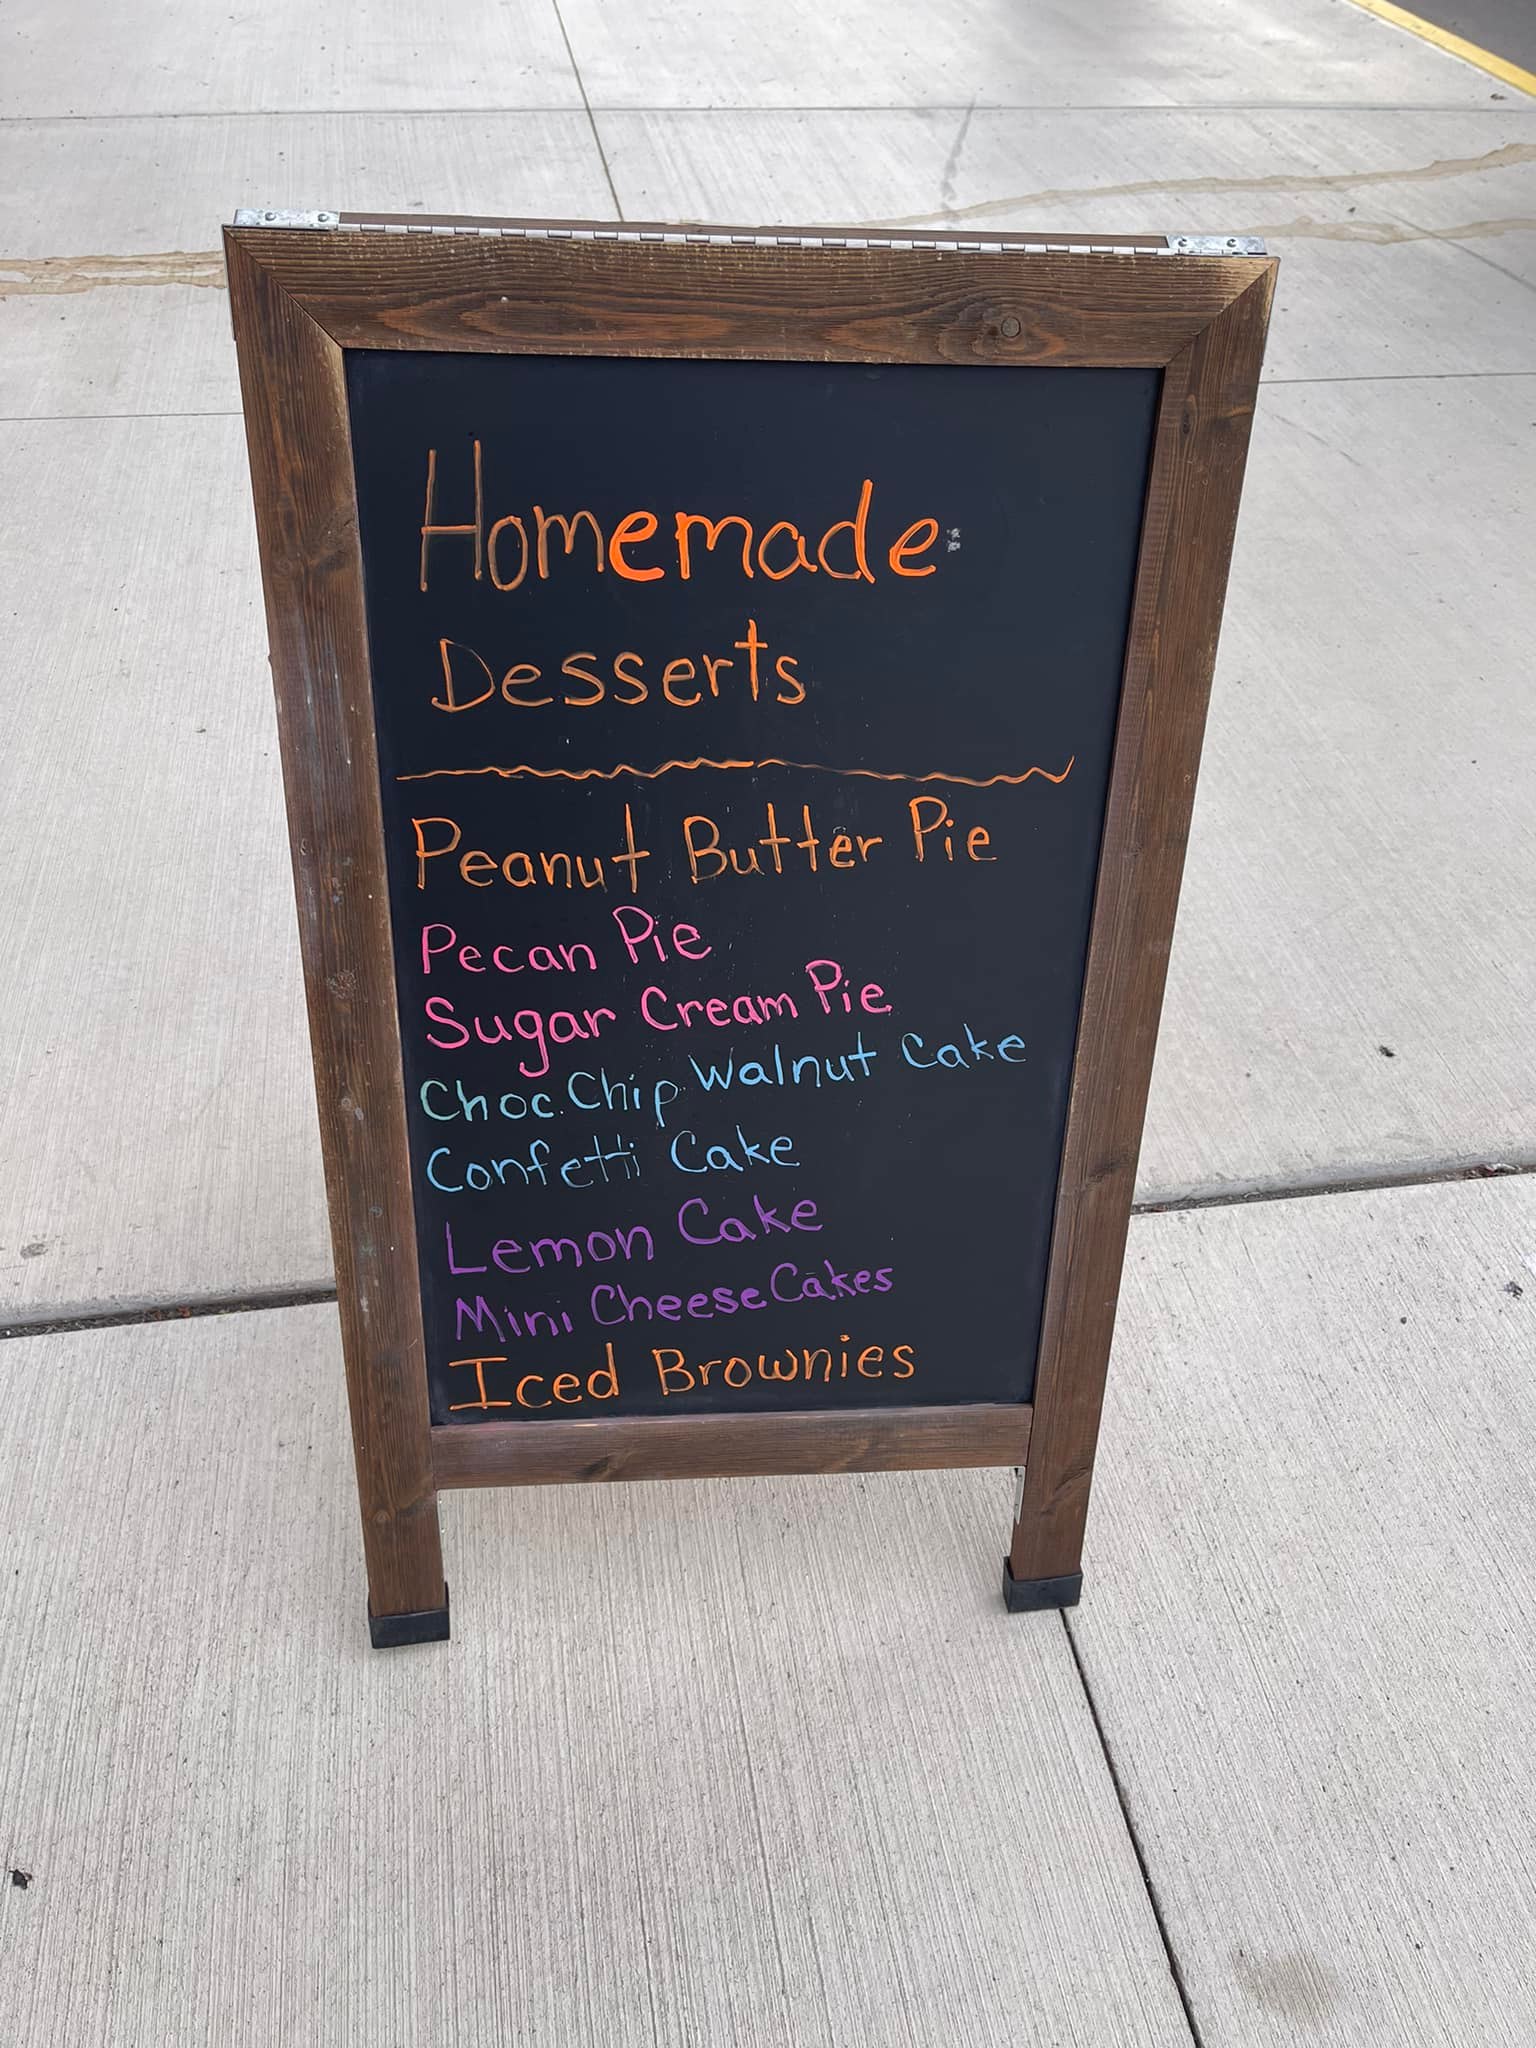 Homemade
Desserts
Peanut Butter Pie
Pecan Pie
Sugar Cream Pie
Choc. Chip Walnut Cake
Confetti Cake
Lemon Cake
Mini CheeseCakes
Iced Brownies